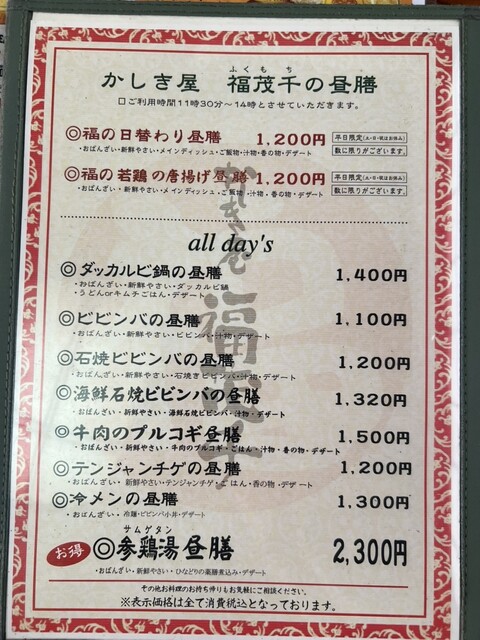 ふくもち
かしき屋 福茂千の昼膳
口ご利用時間11時30分～14時とさせていただきます。
◎福の日替わり昼膳 1,200円 平日限定(土・日・祝はお休み)
・おばんざい・新鮮やさい・メインディッシュ・ご飯物・汁物・香の物・デザート 数に限りがございます。
◎福の若鶏の唐揚げ昼膳 1,200円 平日限定(土・日・祝はお休み)
・おばんざい・新鮮やさい・メインディッシュ・ご飯物・汁物・香の物・デザート 数に限りがございます。
all day's
◎ダッカルビ鍋の昼膳 1,400円
・おばんざい・新鮮やさい・ダッカルビ鍋
・うどんorキムチごはん・デザート
◎ビビンバの昼膳 1,100円
・おばんざい・新鮮やさい・ビビンバ・汁物・デザート
◎石焼ビビンバの昼膳 1,200円
・おばんざい・新鮮やさい・石焼きビビンバ・汁物・デザート
◎海鮮石焼ビビンバの昼膳 1,320円
・おばんざい・新鮮やさい・海鮮石焼ビビンバ・汁物・デザート
◎牛肉のプルコギ昼膳 1,500円
・おばんざい・新鮮やさい・牛肉のプルコギ・ごはん・汁物・香の物・デザート
◎テンジャンチゲの昼膳 1,200円
・おばんざい・新鮮やさい・テンジャンチゲ・ごはん・香の物・デザート
◎冷メンの昼膳 1,300円
・おばんざい・冷麺・ビビンバ小丼・デザート
サムゲタン
お得 ◎参鶏湯昼膳 2,300円
・おばんざい・新鮮やさい・ひなどりの薬膳煮込み・デザート
その他お料理のお持ち帰りもお気軽にご相談ください。
※表示価格は全て消費税込となっております。